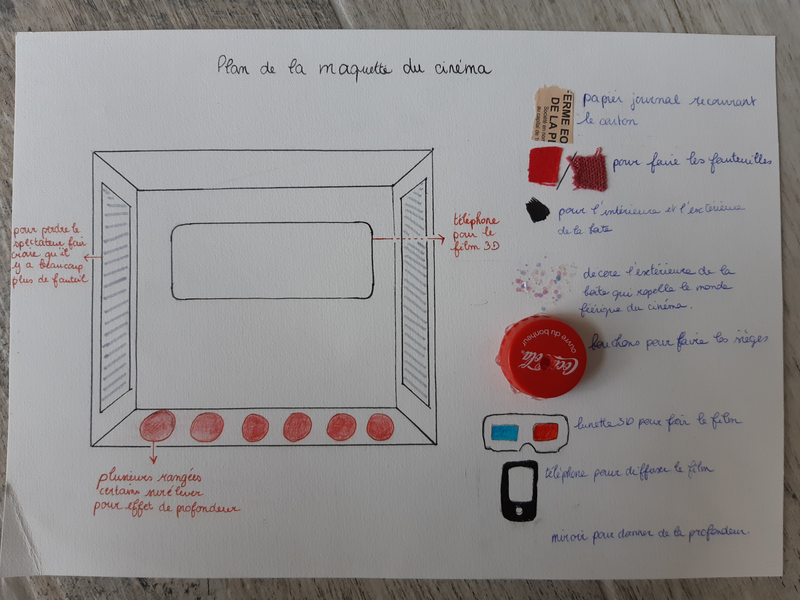 Plan de la maquette du cinéma
FERME EC
DE LA PI
Société en
au capital de
papier journal recouvrant
le carton
pour faire les fauteuilles
pour l'intérieure et l'extérieure
de la boite
decore l'extérieure de la
boite qui rapelle le monde
féérique du cinéma.
ouvre du bonheur
Coca Cola
bouchons pour faire les sièges
lunette 3D pour voir le film
téléphone pour diffuser le film
miroir pour donner de la profondeur.
pour perdre le
spectateur fair
croire qu'il
y a beaucoup
plus de fauteuil
téléphone
pour le
film 3D
plusieurs rangées
certains surélever
pour effet de profondeur